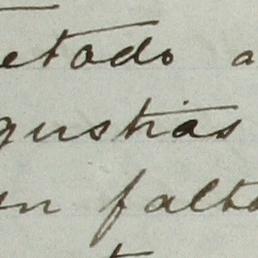 etado a
gustias
un falto